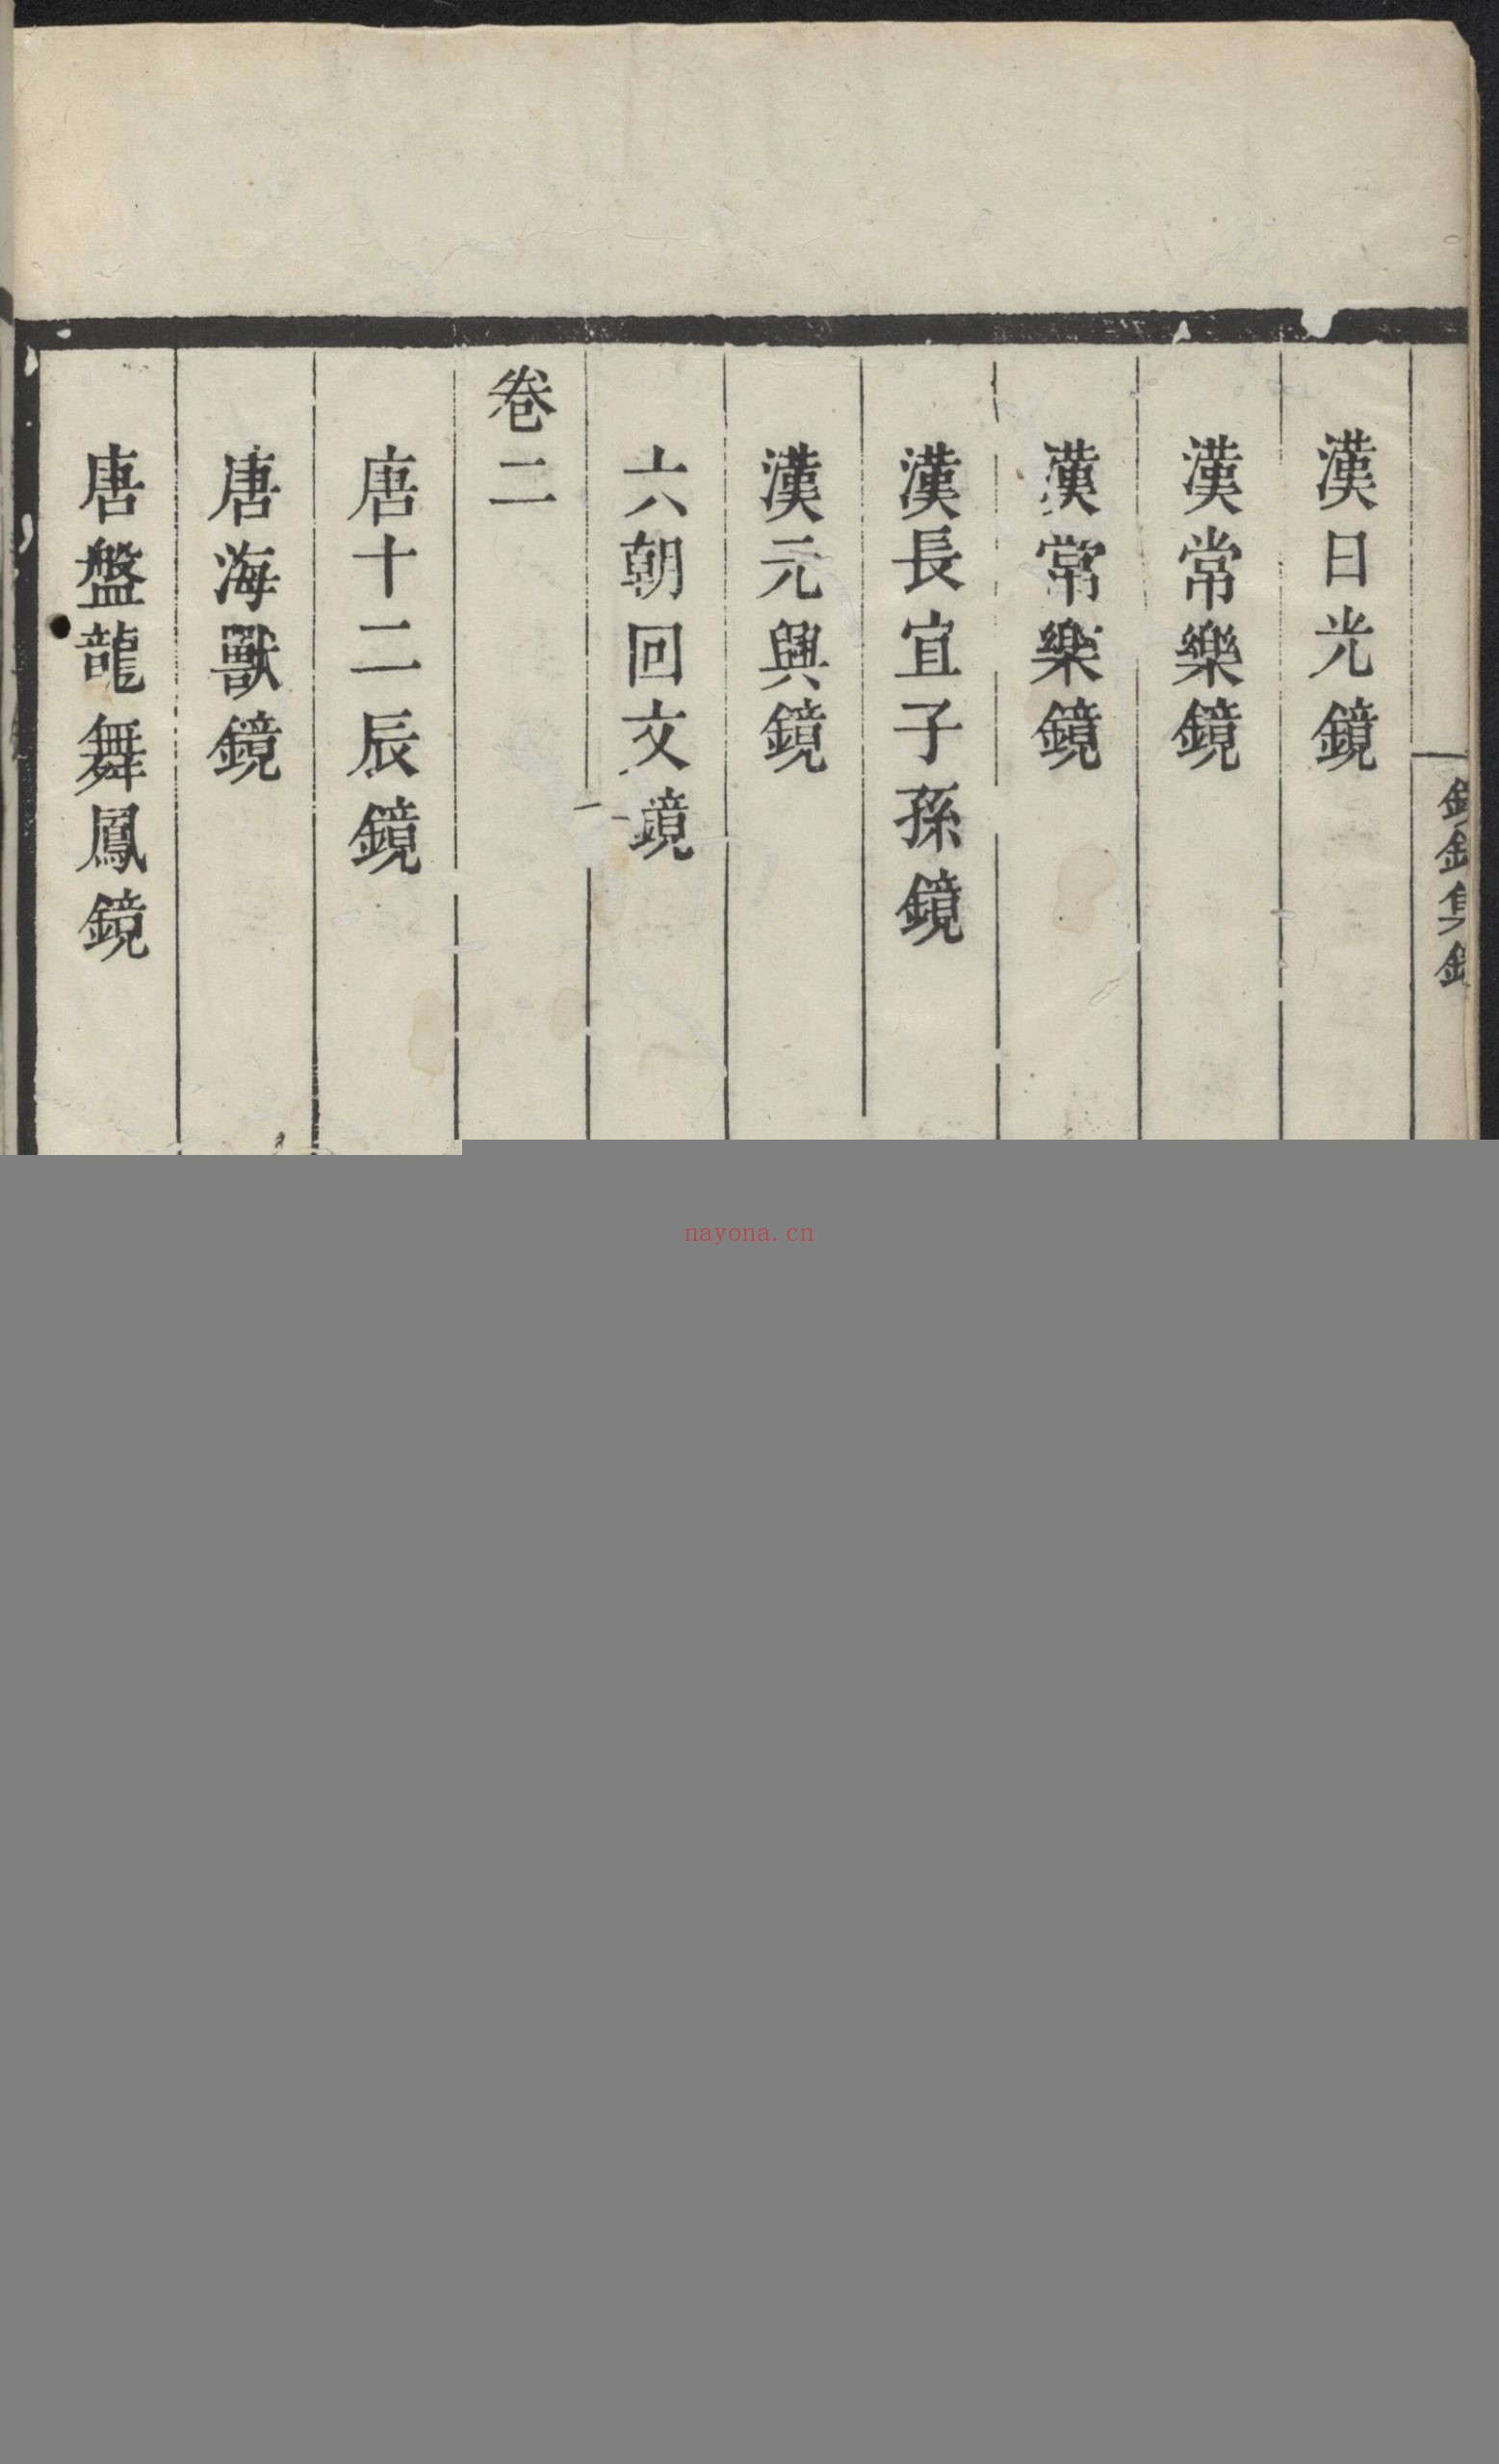 漢日光鏡
漢常樂鏡
漢常樂鏡
漢長宜子孫鏡
漢元興鏡
六朝回文鏡
卷二
唐十二辰鏡
唐海獸鏡
唐盤龍舞鳳鏡
nayona.cn